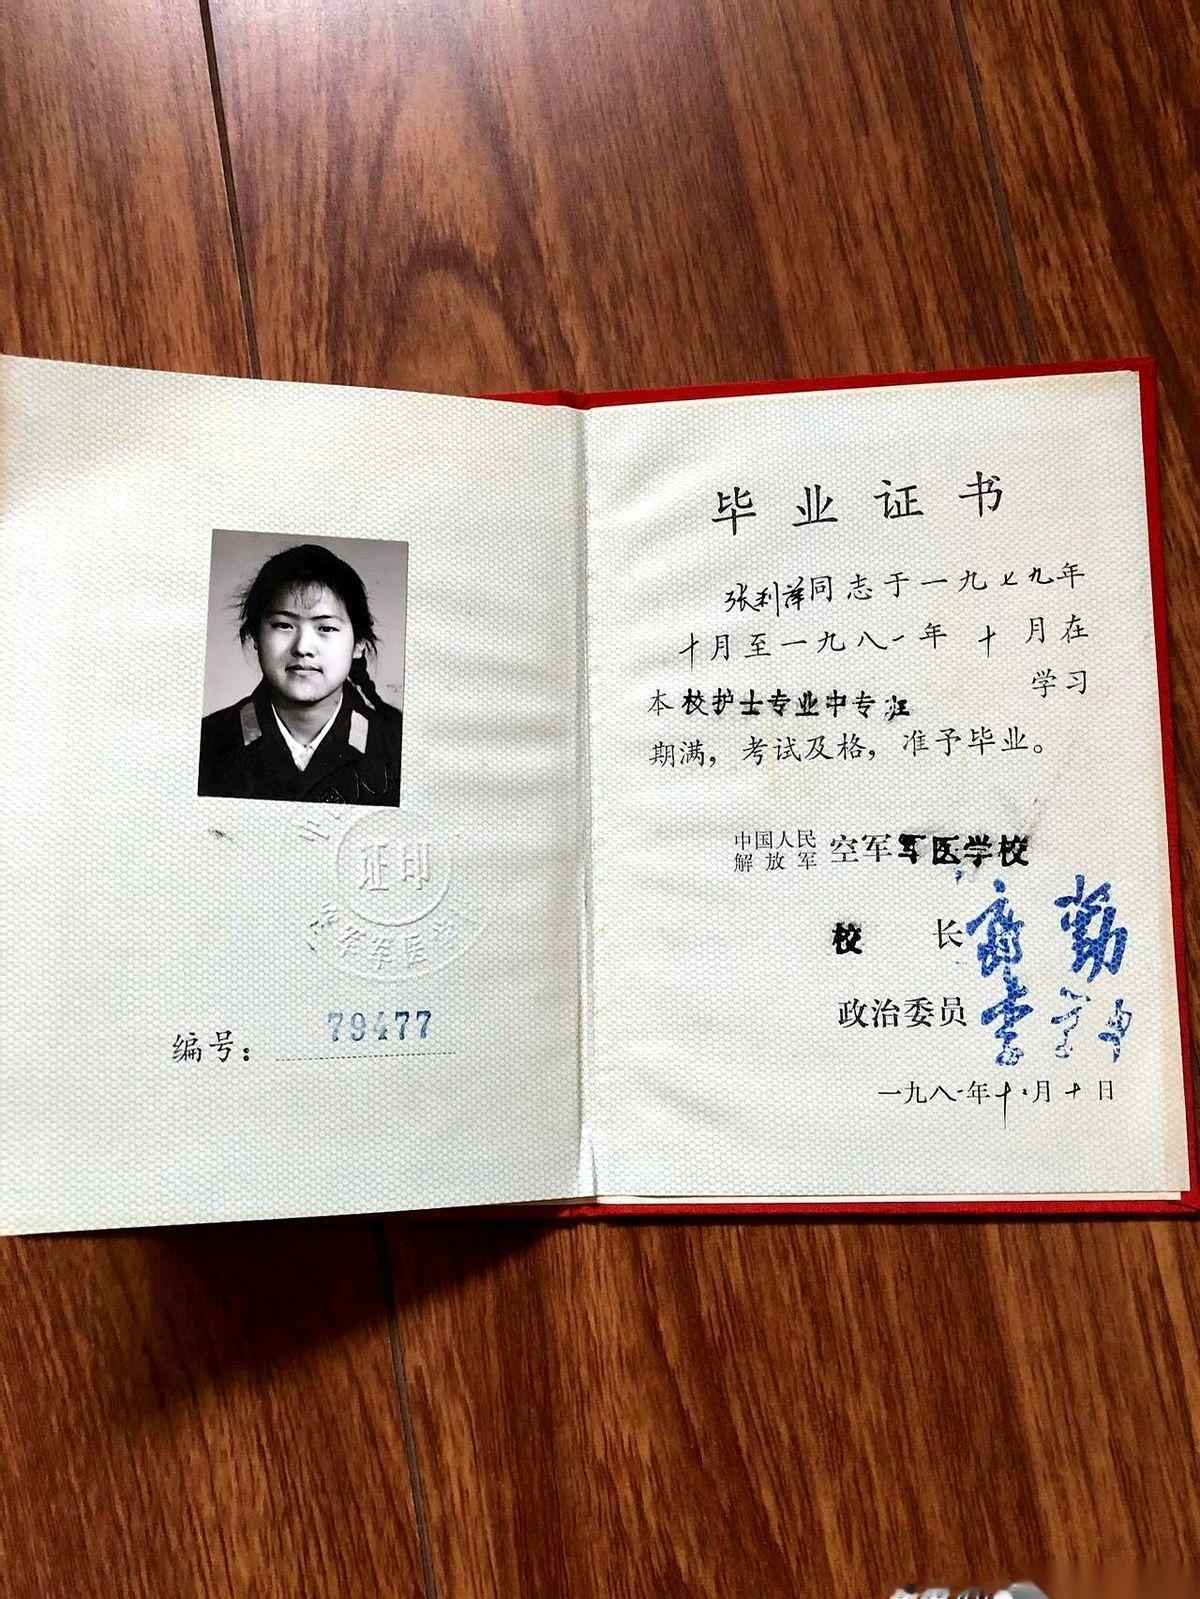 证印
空军军医
编号：79477
毕业证书
张利萍同志于一九七九年
十月至一九八一年 十 月在
本校护士专业中专班 学习
期满，考试及格，准予毕业。
中国人民
解放军 空军军医学校
校 长
政治委员
一九八一年十二月十日